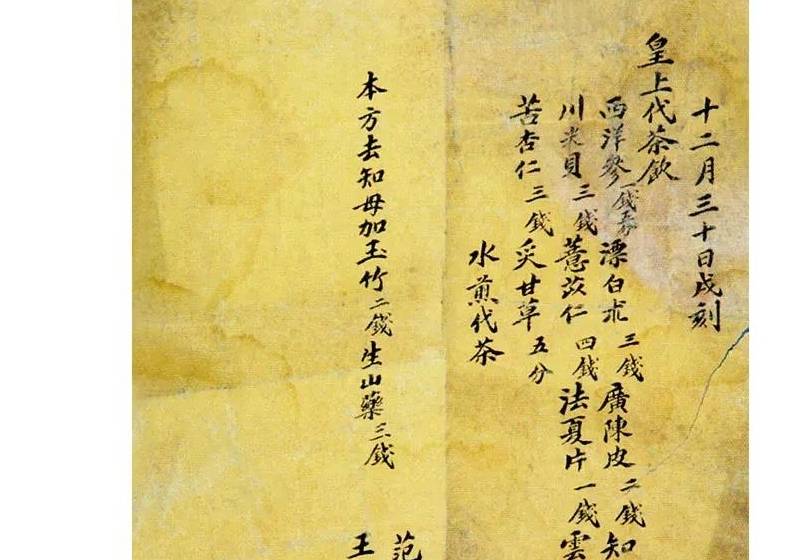 十二月三十日戌刻
皇上代茶飲
西洋參一錢 漂白朮三錢 廣陳皮二錢 知
川尖貝三錢 薏苡仁四錢 法夏片一錢 雲
苦杏仁三錢 炙甘草五分
水煎代茶
范
本方去知母加玉竹二錢生山藥三錢
王